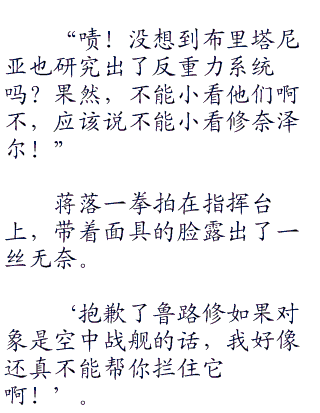 “啧！没想到布里塔尼
亚也研究出了反重力系统
吗？果然，不能小看他们啊
不，应该说不能小看修奈泽
尔！”
蒋落一拳拍在指挥台
上，带着面具的脸露出了一
丝无奈。
‘抱歉了鲁路修如果对
象是空中战舰的话，我好像
还真不能帮你拦住它
啊！’。